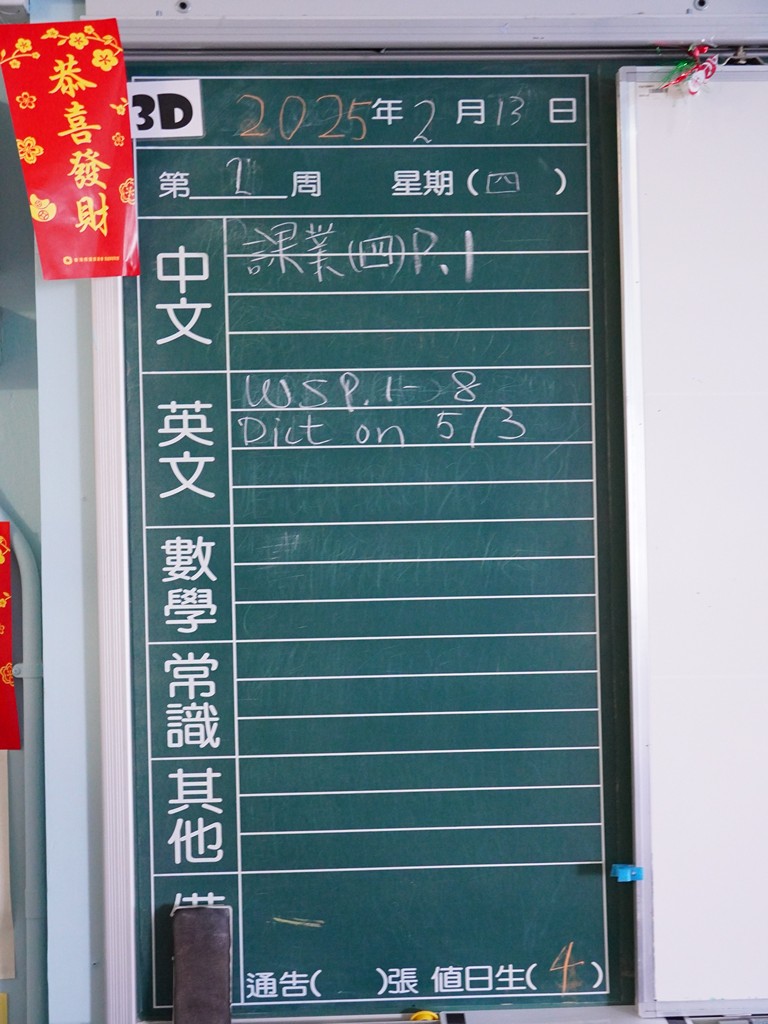 恭喜發財
3D
2025年2月13日
第2周 星期(四)
中文
課業(四)P.1
英文
WSP.1-8
Dict on 5/3
數學
常識
其他
通告( )張 值日生(4)